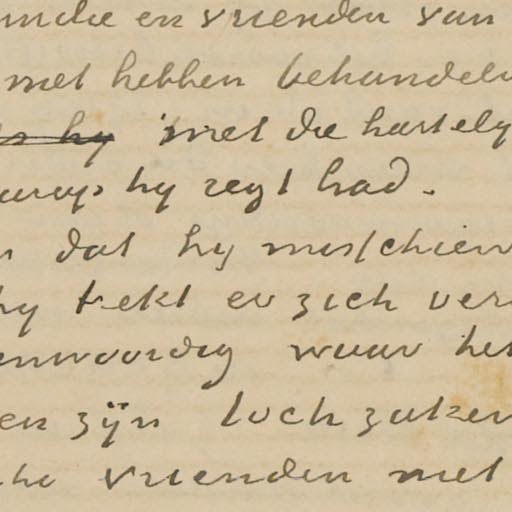 en vrienden van
met hebben behandeld
hy met die hartely
waarop hy regt had.
dat hy misschien
hy trekt er zich ver
enwoordig waar het
en zijn toch zaken
vrienden met